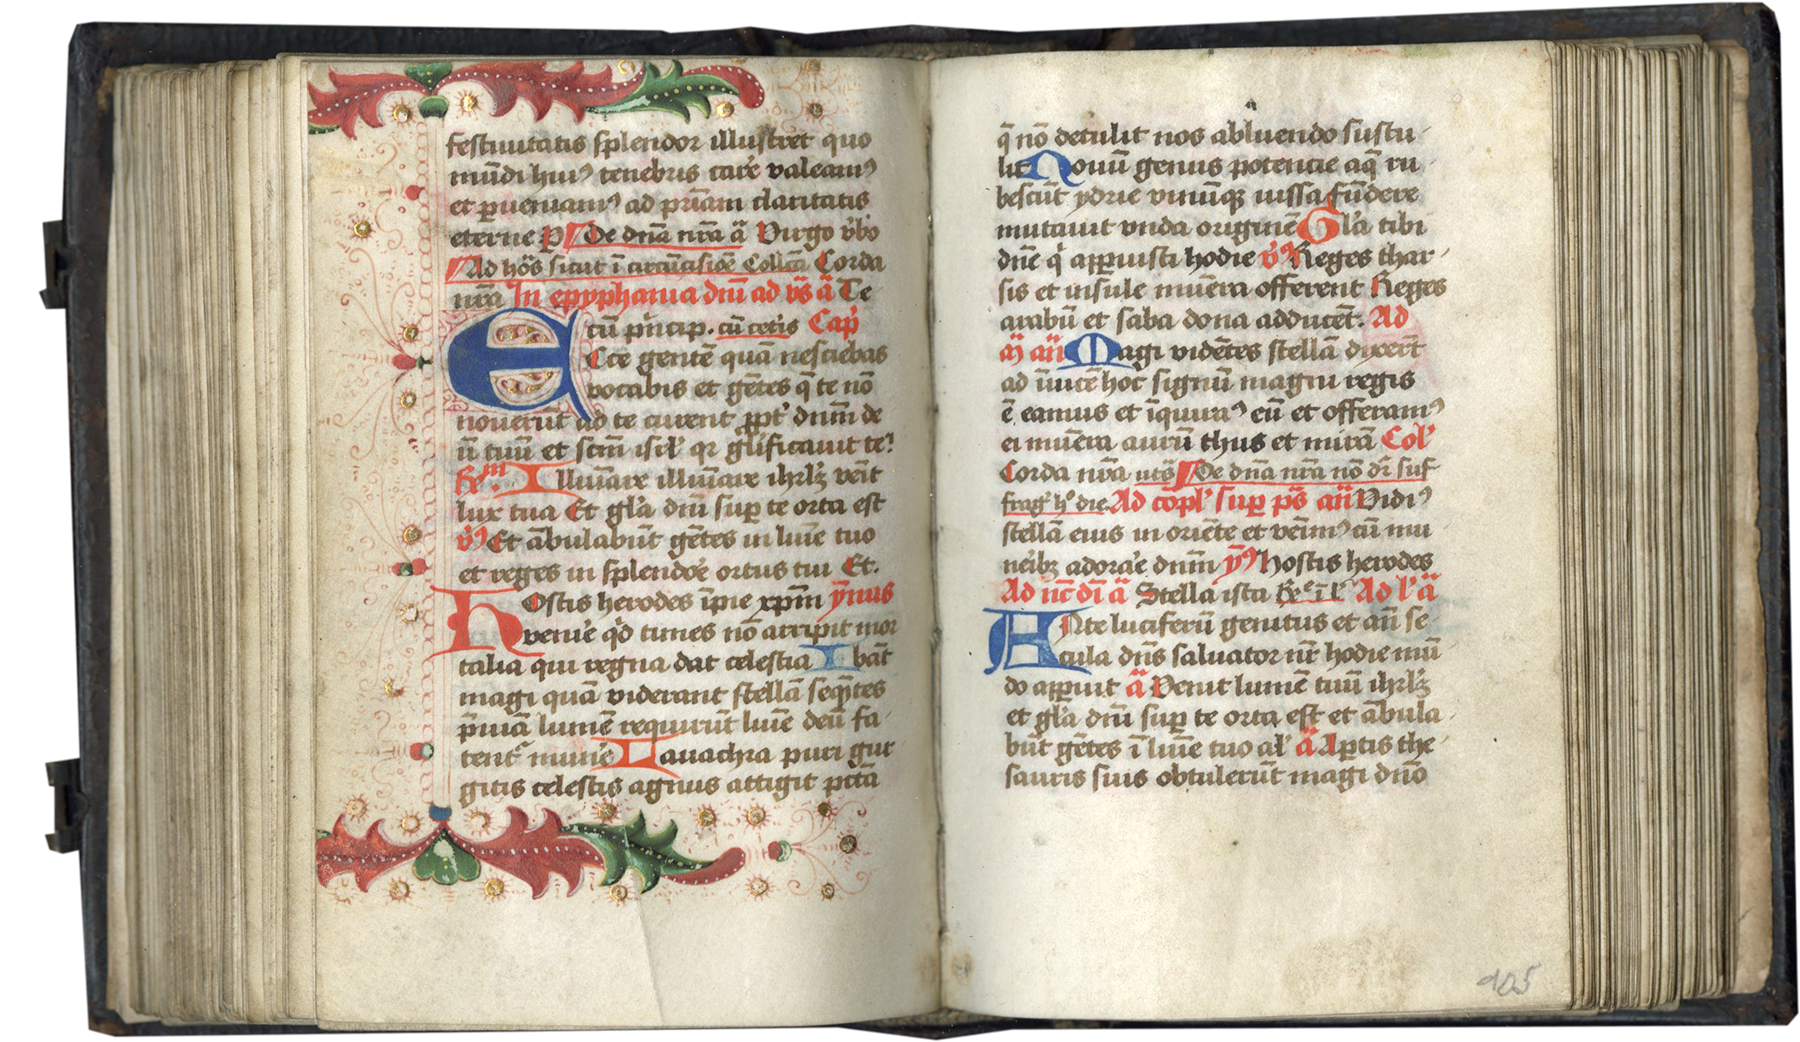 festiuitatis splendor illustret quo
mūdi huiꝰ tenebris carē valeamꝰ
et ꝑueniamꝰ ad p̄riam claritatis
eterne P De dn̄a nr̄a ā Virgo v̄bo
Ad hōs sicut ī circūcisiōe Collcā Corda
nr̄a In epyphania dnī ad vs̄ ā Te
cū prīncip. cū cetīs Cap̄
Ecce gentē quā nesciebas
vocabis et gētes q̄ te nō
nouerūt ad te current ꝓpt̄ dnm̄ de
ū tuū et scm̄ isrl̄ qr gl̄ificauit te
Illuīare illuīare ihrl̄ꝫ venīt
lux tua Et gl̄a dnī sup te orta est
v̄ꝰ Et ābulabūt gētes in luīe tuo
et reges in splendoē ortus tui Et.
Hostis herodes īpie xpm̄ ȳnus
veniē qd̄ times nō arripit mor
talia qui regna dat celestia Ibāt
magi quā viderant stellā seqn̄tes
p̄uiā lumē requirūt luīe deū fa
tent̄ muīe Lauachra puri gur
gitis celestis agnus attigit pctā
q̄ nō detulit nos abluendo sustu
lit Nouū genus potencie aq̄ ru
bescūt ydrie vinūqꝫ iussa fūdere
mutauit vnda originē Gl̄a tibi
dn̄e q̄ apparuisti hodie v̄ꝰ Reges thar
sis et insule mūera offerent Reges
arabū et saba dona adducēt. Ad
ān̄ Magi vidētes stellā dixert̄
ad īuicē hoc signū magni regis
ē eamus et īquiraꝰ eū et offeramꝰ
ei mūera aurū thus et mirrā Col̄
Corda nr̄a uts̄ De dn̄a nr̄a nō dr̄ suf
fraḡ hᵒ die Ad cōpl̄ sup ps̄ an̄ Vidiꝰ
stellā eius in oriēte et venīmꝰ cū mu
neībꝫ adoraē dnm̄ ȳꝰ Hostis herodes
Ad nc̄ dī ā Stella ista Ad l̄ ā
Ante luciferū genitus et an̄ se
cula dn̄s saluator nr̄ hodie mū
do apparuit ā Venit lumē tuū ihrl̄ꝫ
et gl̄a dnī sup te orta est et ābula
būt gētes ī luīe tuo al̄ ā Aꝑtis the
sauris suis obtulerūt magi dn̄o
105